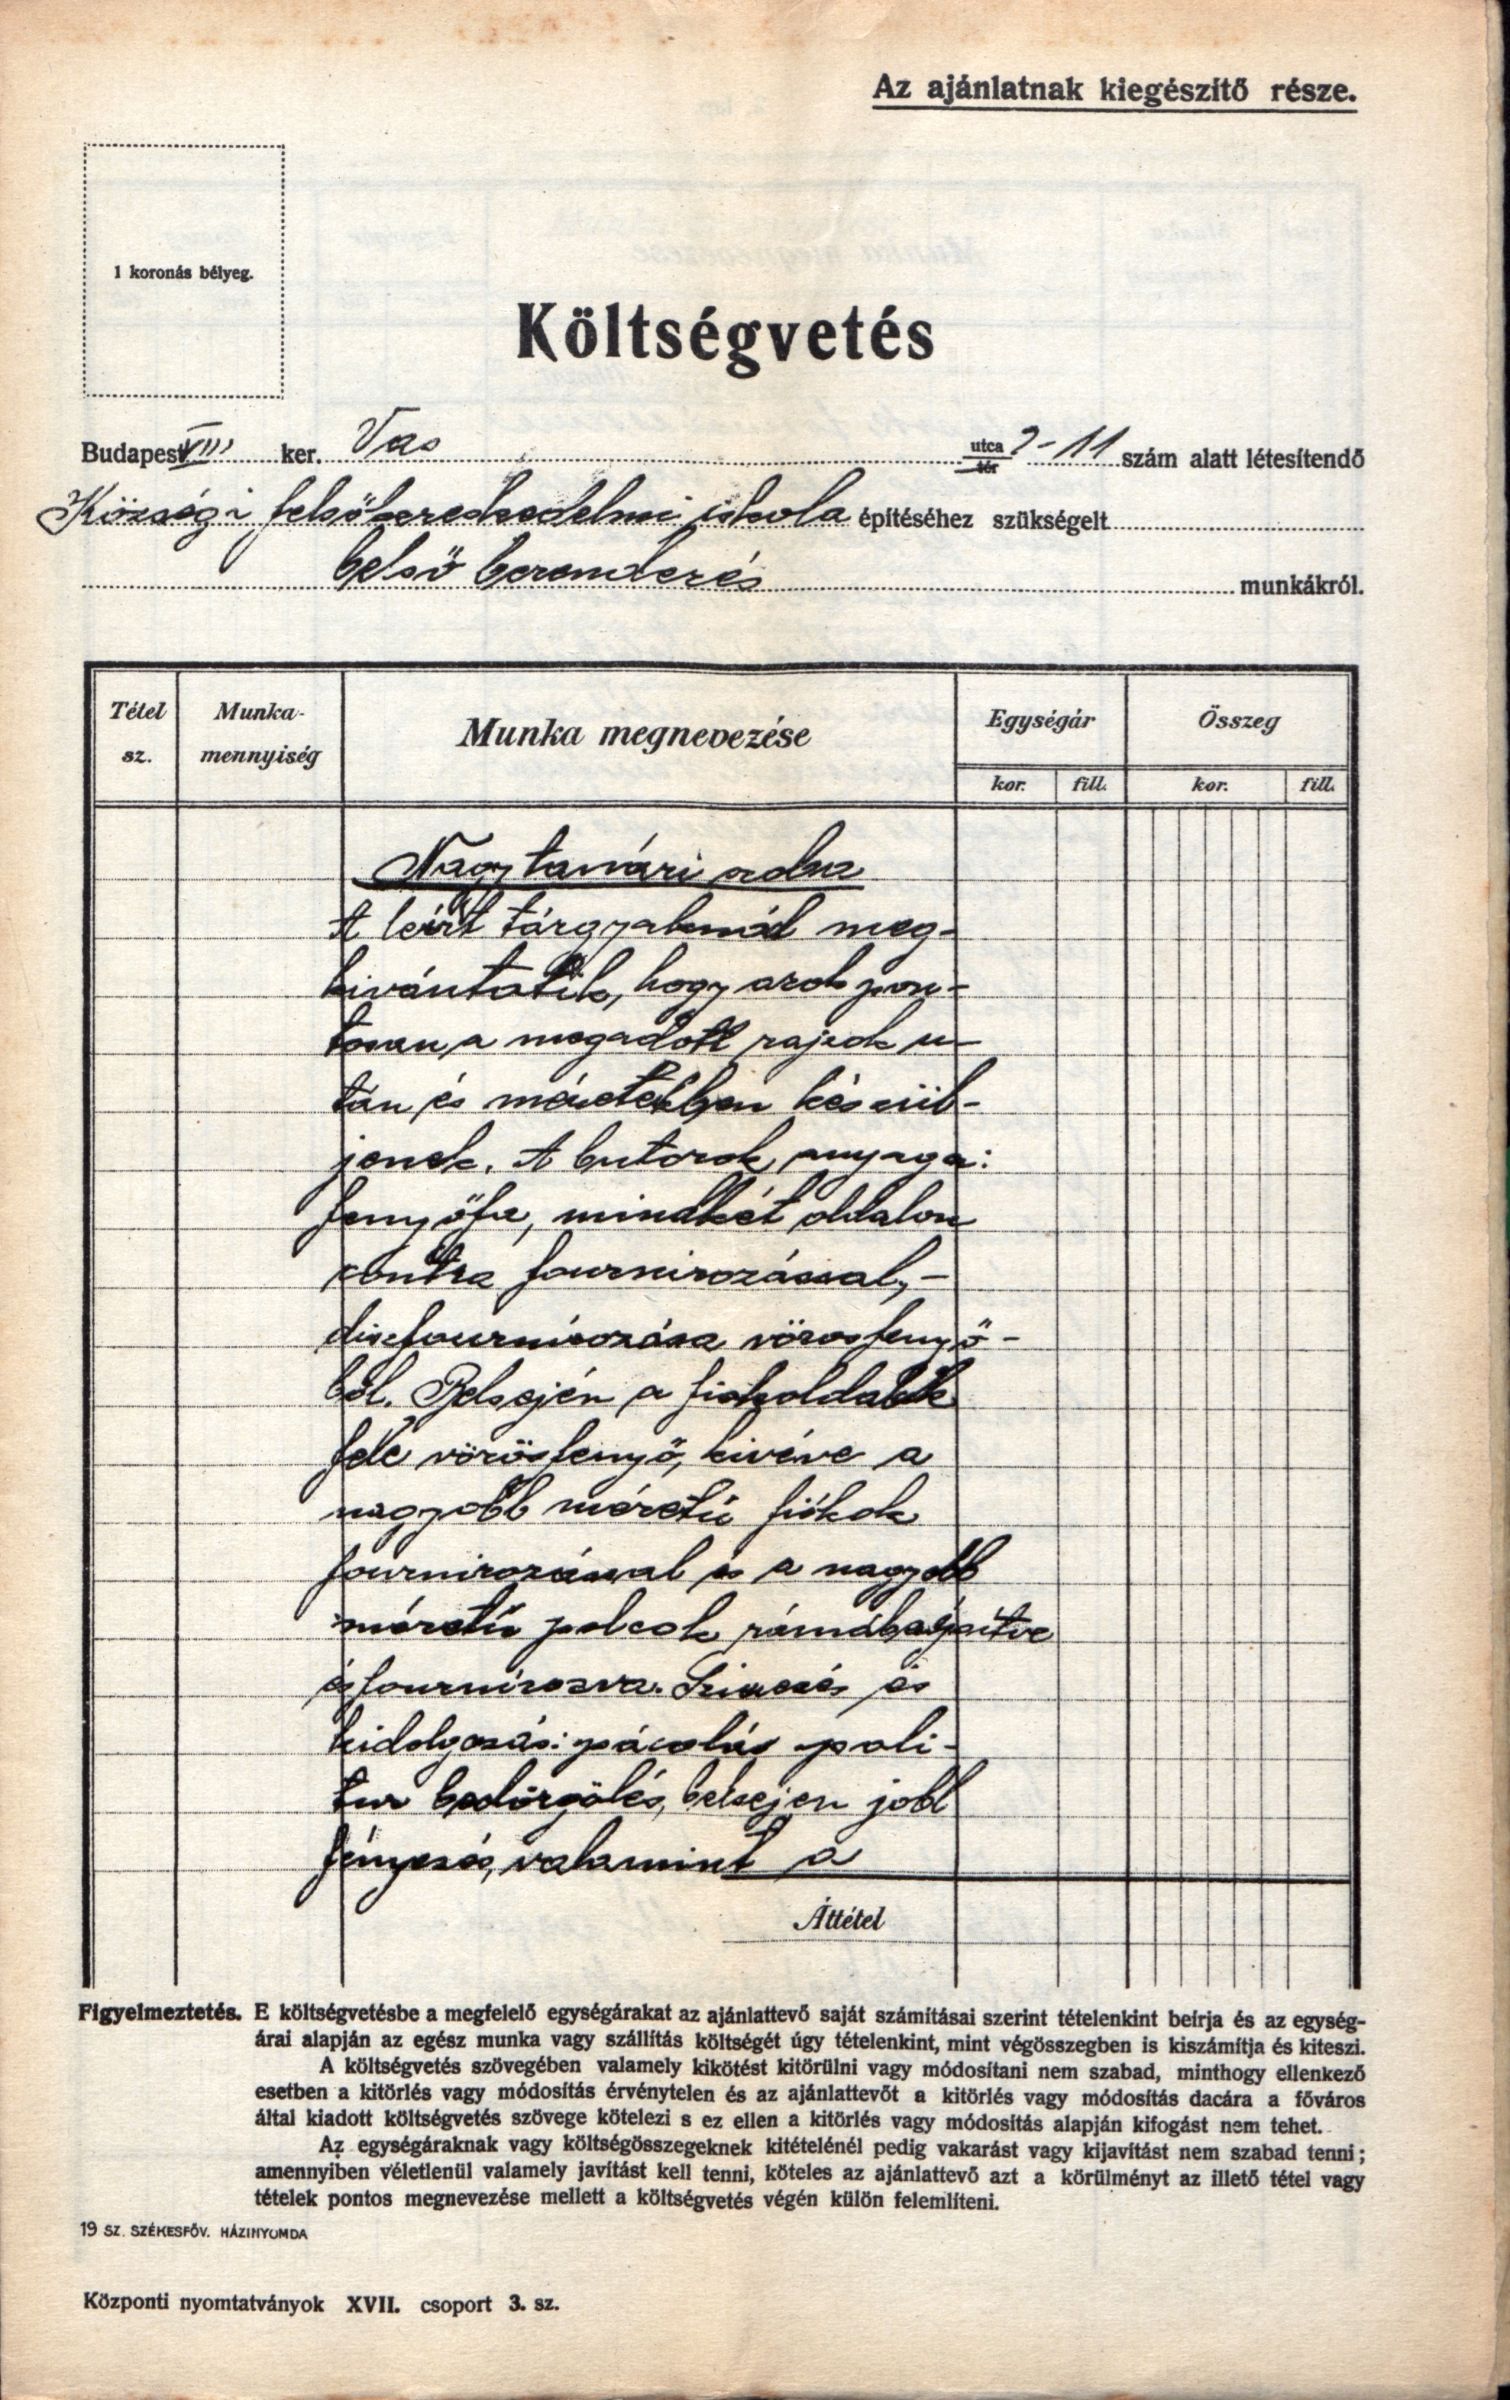 Az ajánlatnak kiegészítő része.
1 koronás bélyeg.
Költségvetés
Budapest VIII ker. Vas utca/tér 9-11 szám alatt létesítendő
Községi felsőkereskedelmi iskola építéséhez szükségelt
belső berendezés munkákról.
Tétel sz. Munka-mennyiség Munka megnevezése Egységár Összeg
kor. fill. kor. fill.
Nagytanári szoba
A leirt tárgyaknál meg-
kivántatik, hogy azok pon-
tosan a megadott rajzok u-
tán és méretekben készül-
jenek. A butorok anyaga:
fenyőfa, mindkét oldalon
kontra fournirozással,-
diszfournirozása vörosfenyő-
ből. Belsején a fiokoldalak
fele vörösfenyő, kivéve a
nagyobb méretű fiókok
fournirozással és a nagyobb
méretű polcok rámába épitve
és fournirozva. Szinezés és
kidolgozás: pácolás poli-
tur bedörgölés, belsejen jobb
fényezés, valamint a
Áttétel
Figyelmeztetés. E költségvetésbe a megfelelő egységárakat az ajánlattevő saját számításai szerint tételenkint beírja és az egység-
árai alapján az egész munka vagy szállítás költségét úgy tételenkint, mint végösszegben is kiszámítja és kiteszi.
A költségvetés szövegében valamely kikötést kitörülni vagy módosítani nem szabad, minthogy ellenkező
esetben a kitörlés vagy módosítás érvénytelen és az ajánlattevőt a kitörlés vagy módosítás dacára a főváros
által kiadott költségvetés szövege kötelezi s ez ellen a kitörlés vagy módosítás alapján kifogást nem tehet.
Az egységáraknak vagy költségösszegeknek kitételénél pedig vakarást vagy kijavítást nem szabad tenni;
amennyiben véletlenül valamely javítást kell tenni, köteles az ajánlattevő azt a körülményt az illető tétel vagy
tételek pontos megnevezése mellett a költségvetés végén külön felemlíteni.
19 SZ. SZÉKESFŐV. HÁZINYOMDA
Központi nyomtatványok XVII. csoport 3. sz.